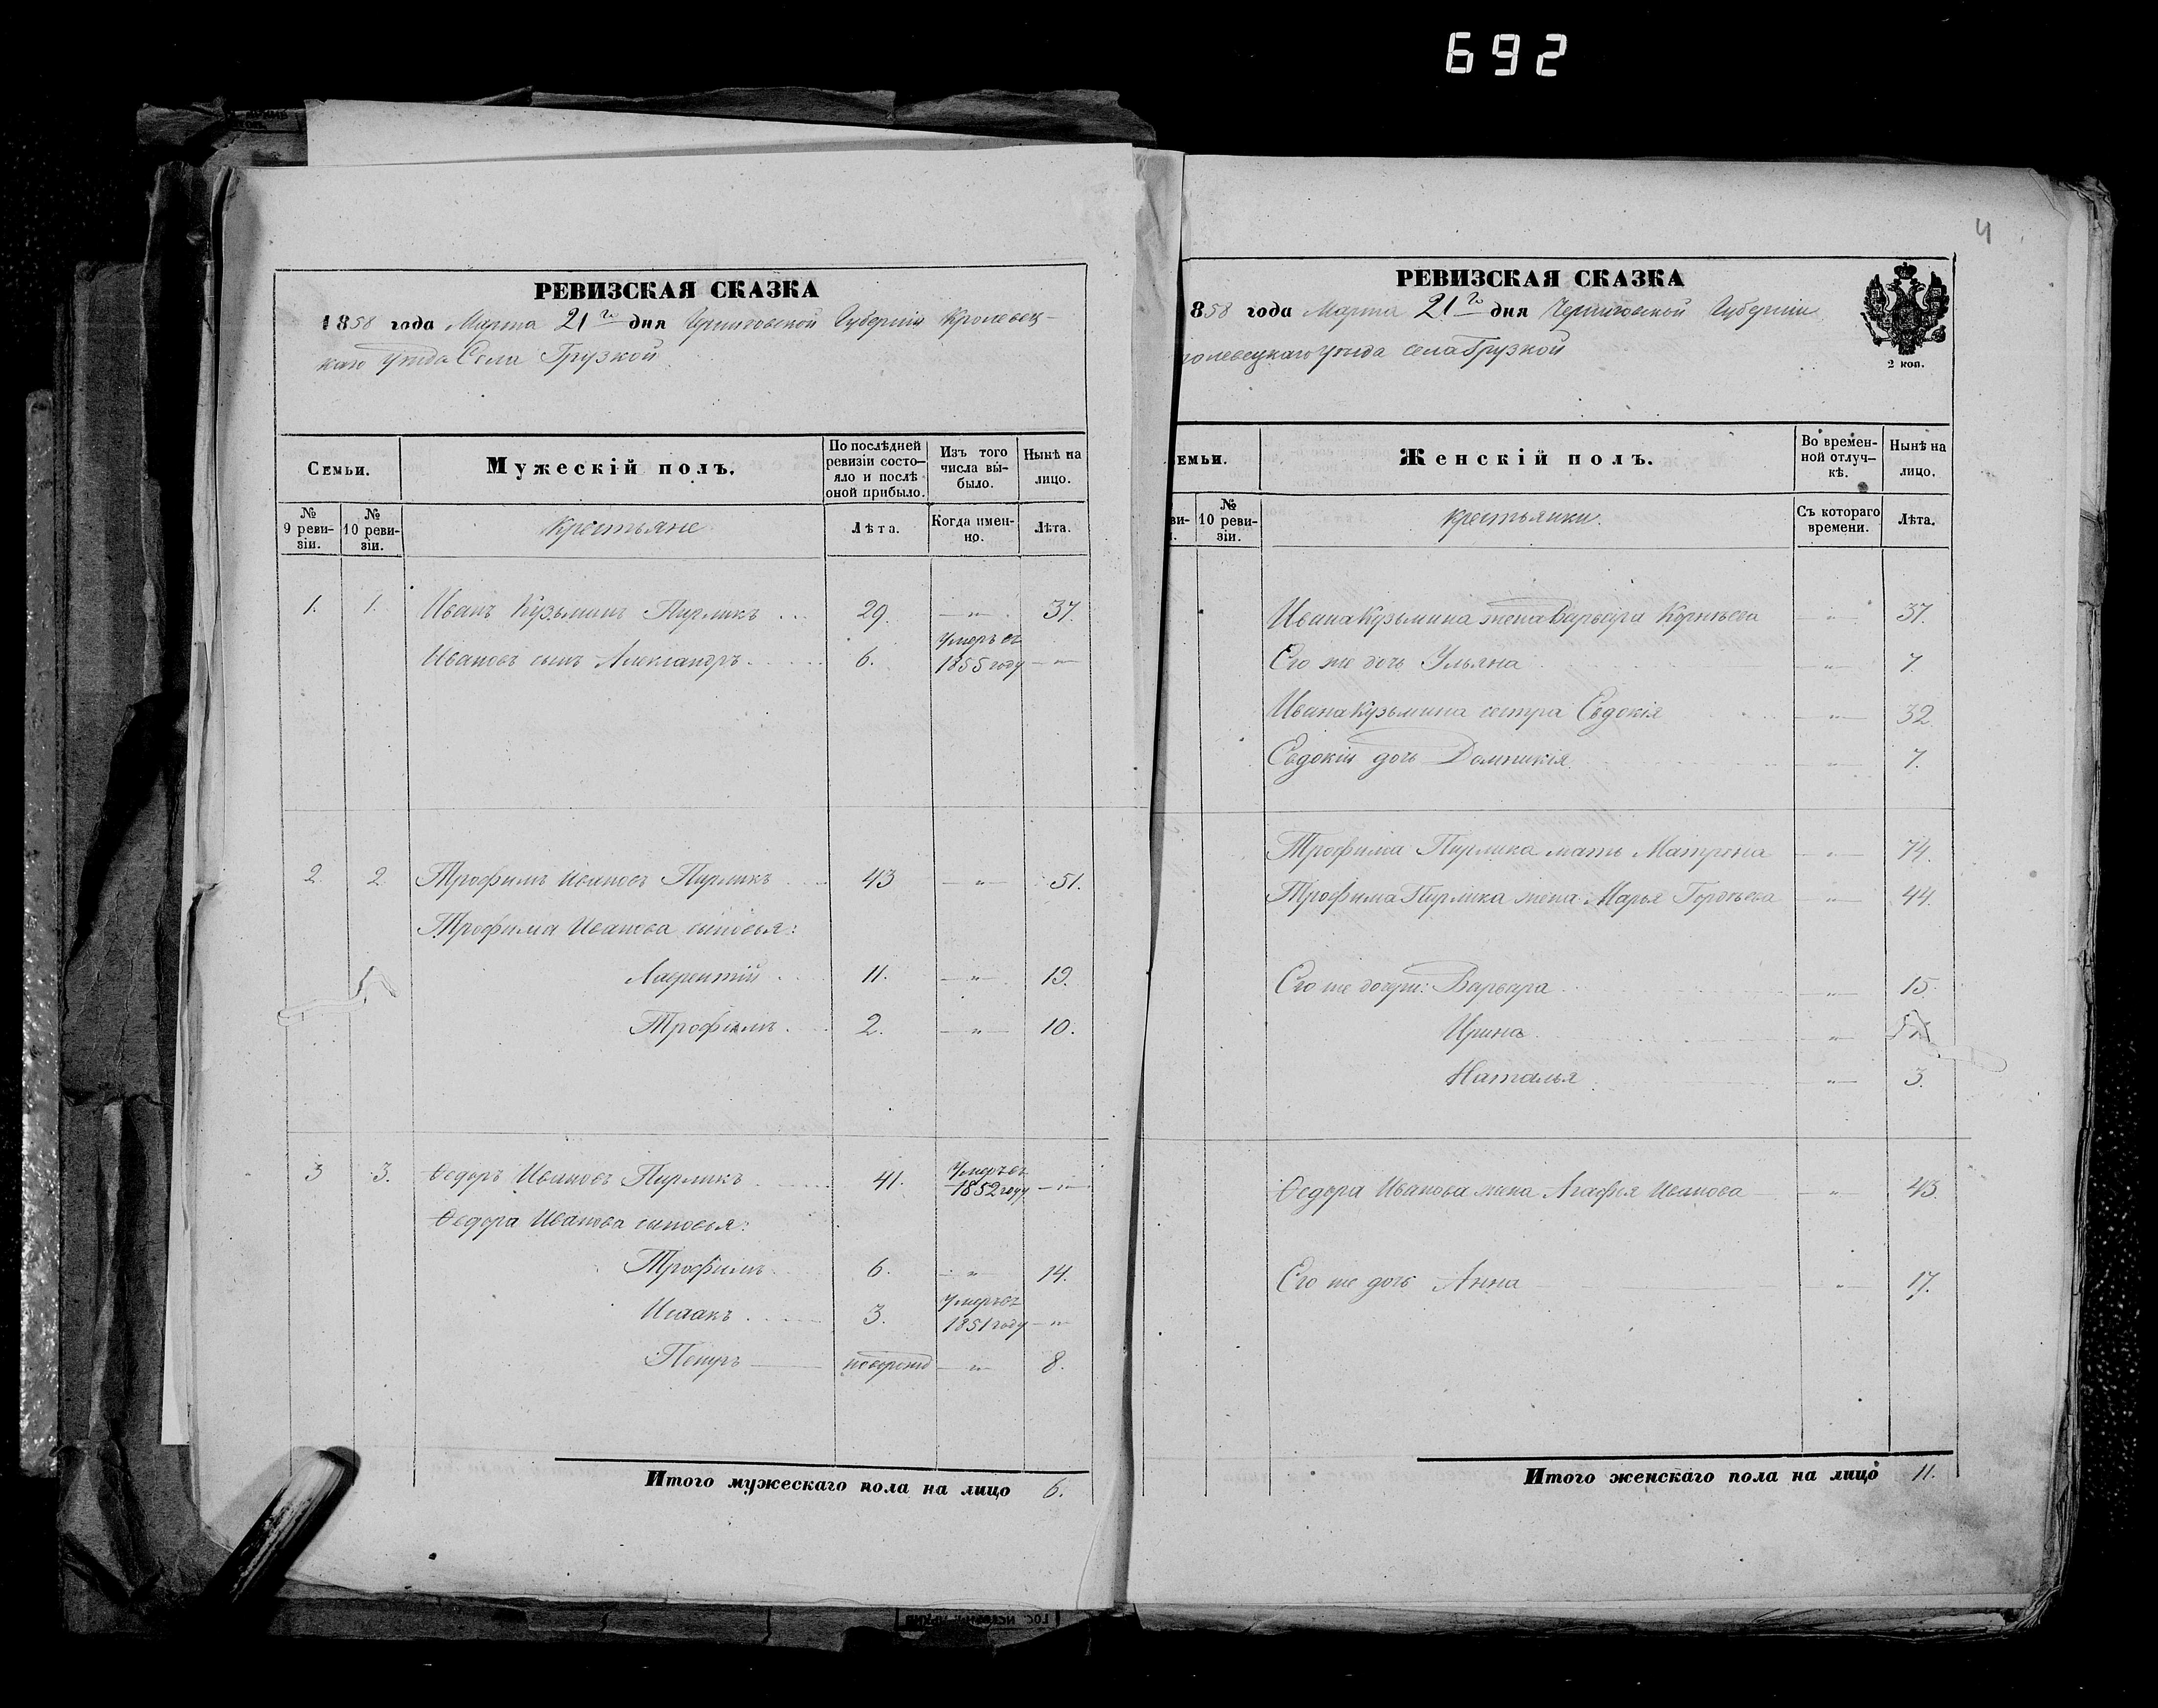 692
РЕВИЗСКАЯ СКАЗКА
1858 года Марта 21го дня Черниговской Губерніи Кролевец-
каго уѣзда Села Грузкой
Семьи.
Мужескій полъ.
По послѣдней ревизіи состо-яло и послѣ оной прибыло.
Изъ того числа вы-было.
Нынѣ на лицо.
№ 9 реви-зіи.
№ 10 реви-зіи.
Крестьяне
Лѣта.
Когда имен-но.
Лѣта.
1. 1. Иванъ Кузьминъ Пирликъ 29. — " — 37.
Ивановъ сынъ Александръ 6. Умеръ въ 1855 году — " —
2. 2. Трофимъ Ивановъ Пирликъ 43 — " — 51.
Трофима Иванова сыновья:
Лаврентій 11. — " — 19.
Трофимъ 2. — " — 10.
3 3. Ѳедоръ Ивановъ Пирликъ 41. Умеръ въ 1852 году — " —
Ѳедора Иванова сыновья:
Трофимъ 6. — " — 14.
Исаакъ 3. Умеръ въ 1851 году — " —
Петръ новорожд — " — 8.
Итого мужескаго пола на лицо 6.
4
РЕВИЗСКАЯ СКАЗКА
858 года Марта 21го дня Черниговской Губерніи
ролевецкаго уѣзда села Грузкой
2 коп.
емьи.
Женскій полъ.
Во времен-ной отлуч-кѣ.
Нынѣ на лицо.
ви-
№ 10 реви-зіи.
крестьянки.
Съ котораго времени.
Лѣта.
Ивана Кузьмина жена Варвара Корнѣева — " — 37.
Его же дочь Ульяна — " — 7.
Ивана Кузьмина сестра Евдокія — " — 32.
Евдокіи дочь Домникія — " — 7.
Трофима Пирлика мать Матрона — " — 74.
Трофима Пирлика жена Марья Гордѣева — " — 44.
Его же дочери: Варвара — " — 15.
Ирина — " —
Наталья — " — 3.
Ѳедора Иванова жена Агафья Иванова — " — 43.
Его же дочь Анна — " — 17.
Итого женскаго пола на лицо 11.